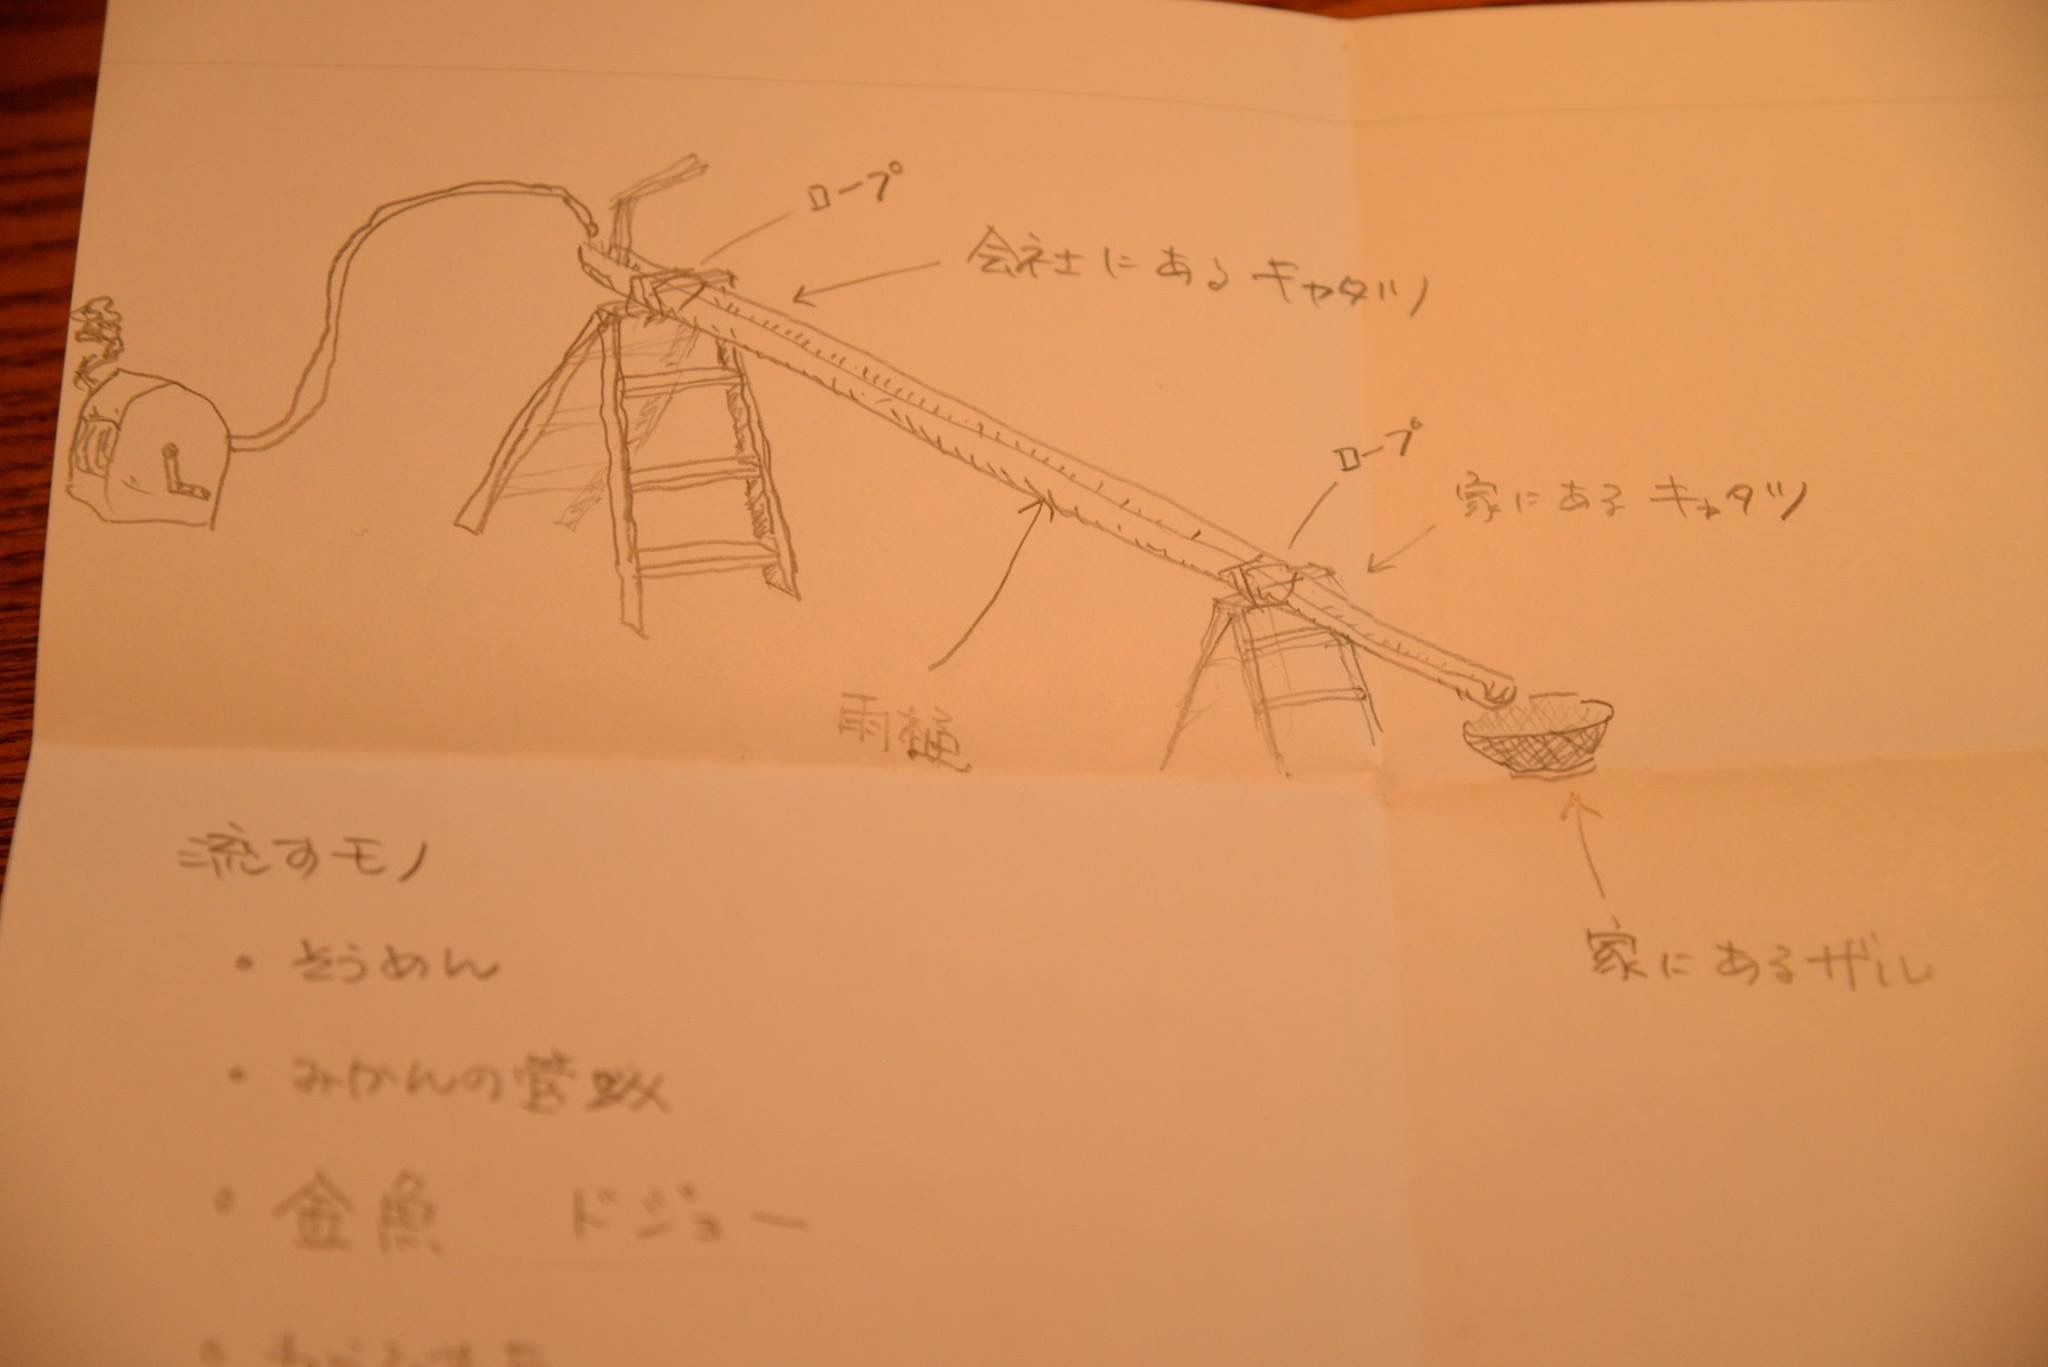 ロープ
会社にあるキャタツ
ロープ
家にあるキャタツ
雨樋
家にあるザル
流すモノ
・そうめん
・みかんの缶詰
・金魚 ドジョー